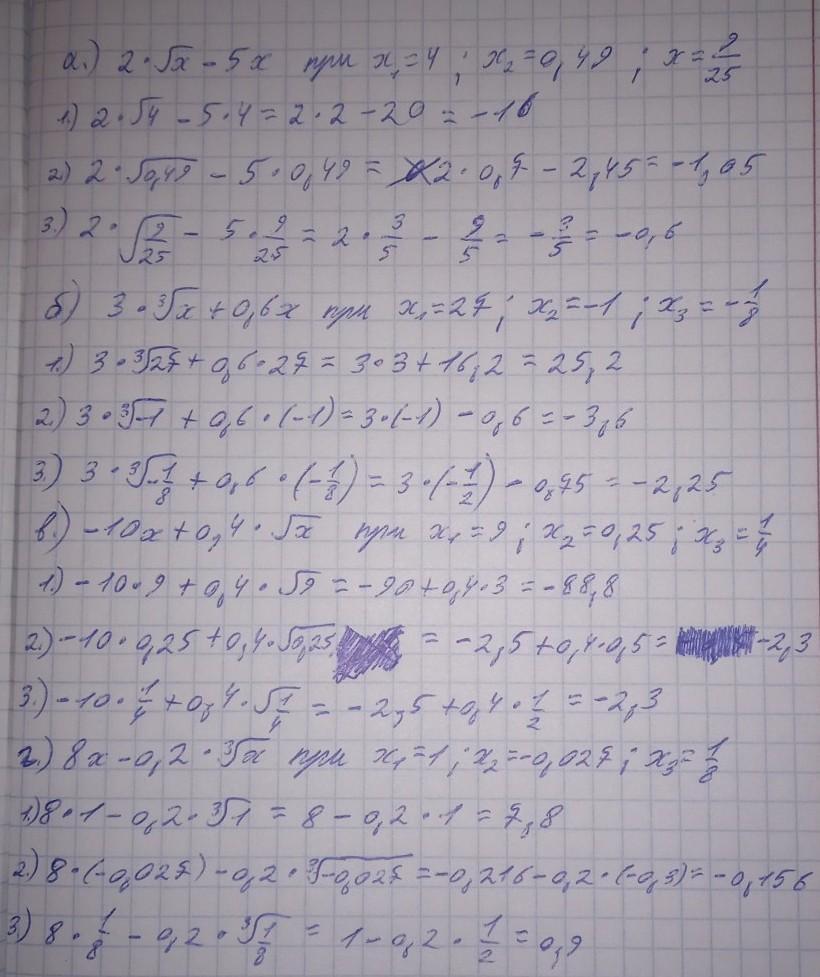 а.) 2·√x − 5x при x₁=4 ; x₂=0,49 ; x=9/25
1.) 2·√4 − 5·4 = 2·2 − 20 = −16
2) 2·√0,49 − 5·0,49 = 2·0,7 − 2,45 = −1,05
3.) 2·√9/25 − 5·9/25 = 2·3/5 − 9/5 = −3/5 = −0,6
б) 3·³√x + 0,6x при x₁=27 ; x₂=−1 ; x₃=−1/8
1.) 3·³√27 + 0,6·27 = 3·3 + 16,2 = 25,2
2.) 3·³√−1 + 0,6·(−1) = 3·(−1) − 0,6 = −3,6
3.) 3·³√−1/8 + 0,6·(−1/8) = 3·(−1/2) − 0,75 = −2,25
в.) −10x + 0,4·√x при x₁=9 ; x₂=0,25 ; x₃=1/4
1.) −10·9 + 0,4·√9 = −90 + 0,4·3 = −88,8
2.) −10·0,25 + 0,4·√0,25 = −2,5 + 0,4·0,5 = −2,3
3.) −10·1/4 + 0,4·√1/4 = −2,5 + 0,4·1/2 = −2,3
г.) 8x − 0,2·³√x при x₁=1 ; x₂=−0,027 ; x₃=1/8
1.) 8·1 − 0,2·³√1 = 8 − 0,2·1 = 7,8
2.) 8·(−0,027) − 0,2·³√−0,027 = −0,216 − 0,2·(−0,3) = −0,156
3) 8·1/8 − 0,2·³√1/8 = 1 − 0,2·1/2 = 0,9